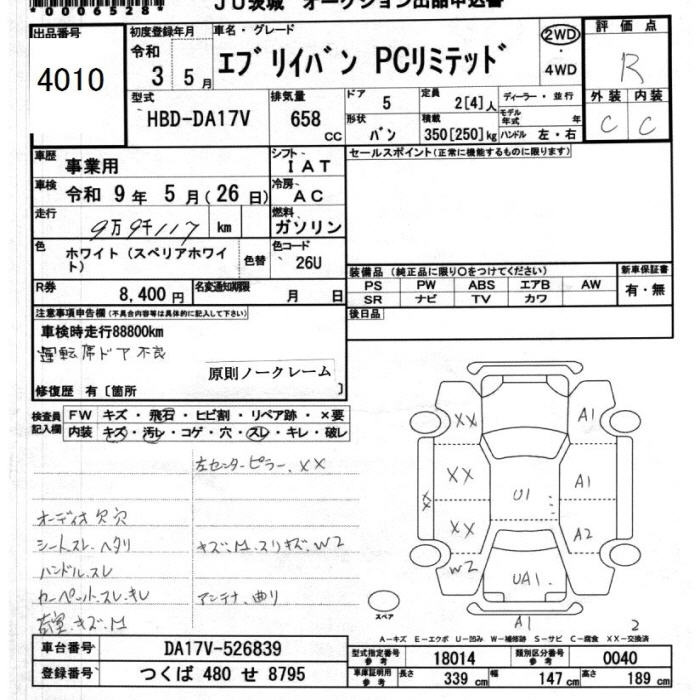 *0006528*
JU茨城 オークション出品申込書
出品番号
4010
初度登録年月
令和
3 5月
車名・グレード
エブリイバン PCリミテッド
2WD
・
4WD
評価点
R
外装 内装
C C
型式
HBD-DA17V
排気量
658
cc
ドア
5
定員
2[4]人
ディーラー・並行
モデル
年式 年
形状
バン
積載
350[250]kg
ハンドル 左・右
車歴
事業用
シフト
IAT
セールスポイント(正常に機能するものに限ります)
車検
令和 9年 5月(26日)
冷房
AC
走行
9万9千117 km
燃料
ガソリン
色
ホワイト(スペリアホワイト)
色替
色コード
26U
装備品(純正品に限り○をつけてください)
新車保証書
PS PW ABS エアB AW
SR ナビ TV カワ
有・無
R券
8,400円
名変通知期限
月 日
後日品
注意事項申告欄(不具合内容等は具体的に記入して下さい)
車検時走行88800km
運転席ドア不良
原則ノークレーム
修復歴 有〔箇所 〕
検査員
記入欄
FW キズ・飛石・ヒビ割・リペア跡・×要
内装 キズ・汚レ・コゲ・穴・スレ・キレ・破レ
左センターピラー、XX
オーディオ欠穴
シートスレ・ヘタリ
キズ、M、スリキズ、W2
ハンドル、スレ
カーペットスレ・キレ
アンテナ、曲リ
荷室、キズ、M
XX
A1
XX
XX
U1
A1
XX
A2
W2
UA1
A1
2
スペア
A－キズ E－エクボ U－凹み W－補修跡 S－サビ C－腐食 XX－交換済
車台番号
DA17V-526839
型式指定番号
参考
18014
類別区分番号
参考
0040
登録番号
つくば 480 せ 8795
車庫証明用
参考
長さ
339cm
幅
147cm
高さ
189cm